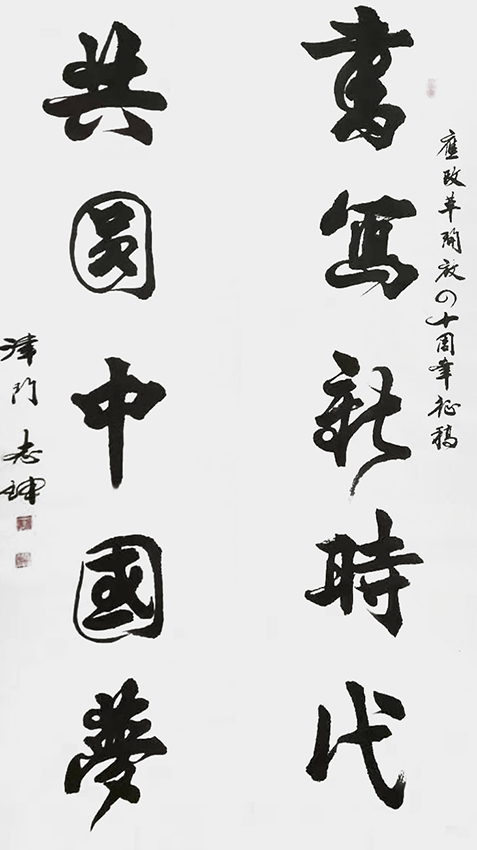 應改革開放四十周年征稿
書寫新時代
共圓中國夢
津門 志坤